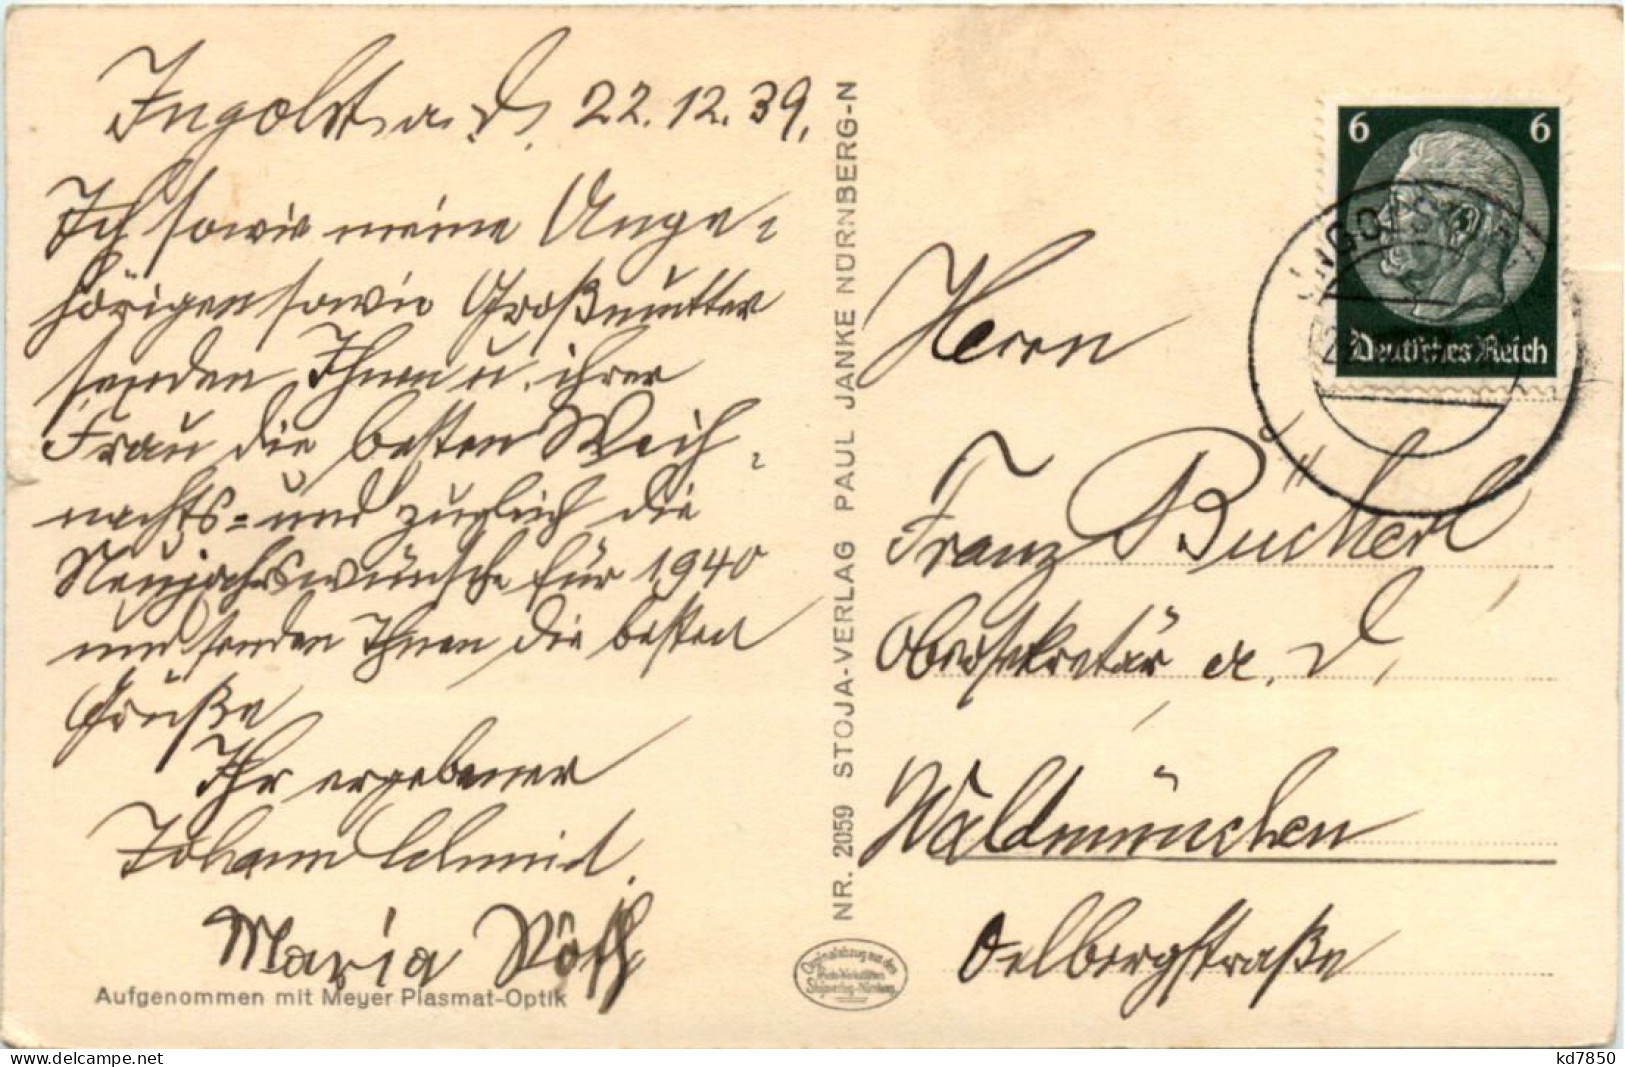 Ingolst. a. D. 22.12.39.
Ich sowie meine Ange-
hörigen sowie Großmutter
senden Ihnen u. ihrer
Frau die besten Weih-
nachts- und zugleich die
Neujahrswünsche für 1940
und senden Ihnen die besten
Grüße
Ihr ergebener
Johann Schmid.
Maria
Aufgenommen mit Meyer Plasmat-Optik
NR. 2059 STOJA-VERLAG PAUL JANKE NÜRNBERG-N
6 6
Deutsches Reich
INGOLST
Herrn
Franz Bückerl
Obersekretär a. D.
Waldmünchen
Oelbergstraße
www.delcampe.net
kd7850